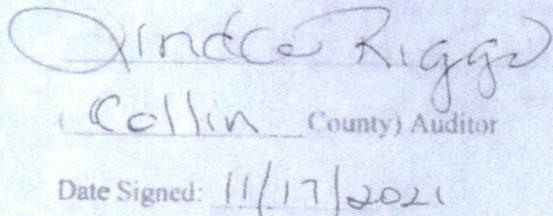 Linda Riggs
( Collin County) Auditor
Date Signed: 11/17/2021